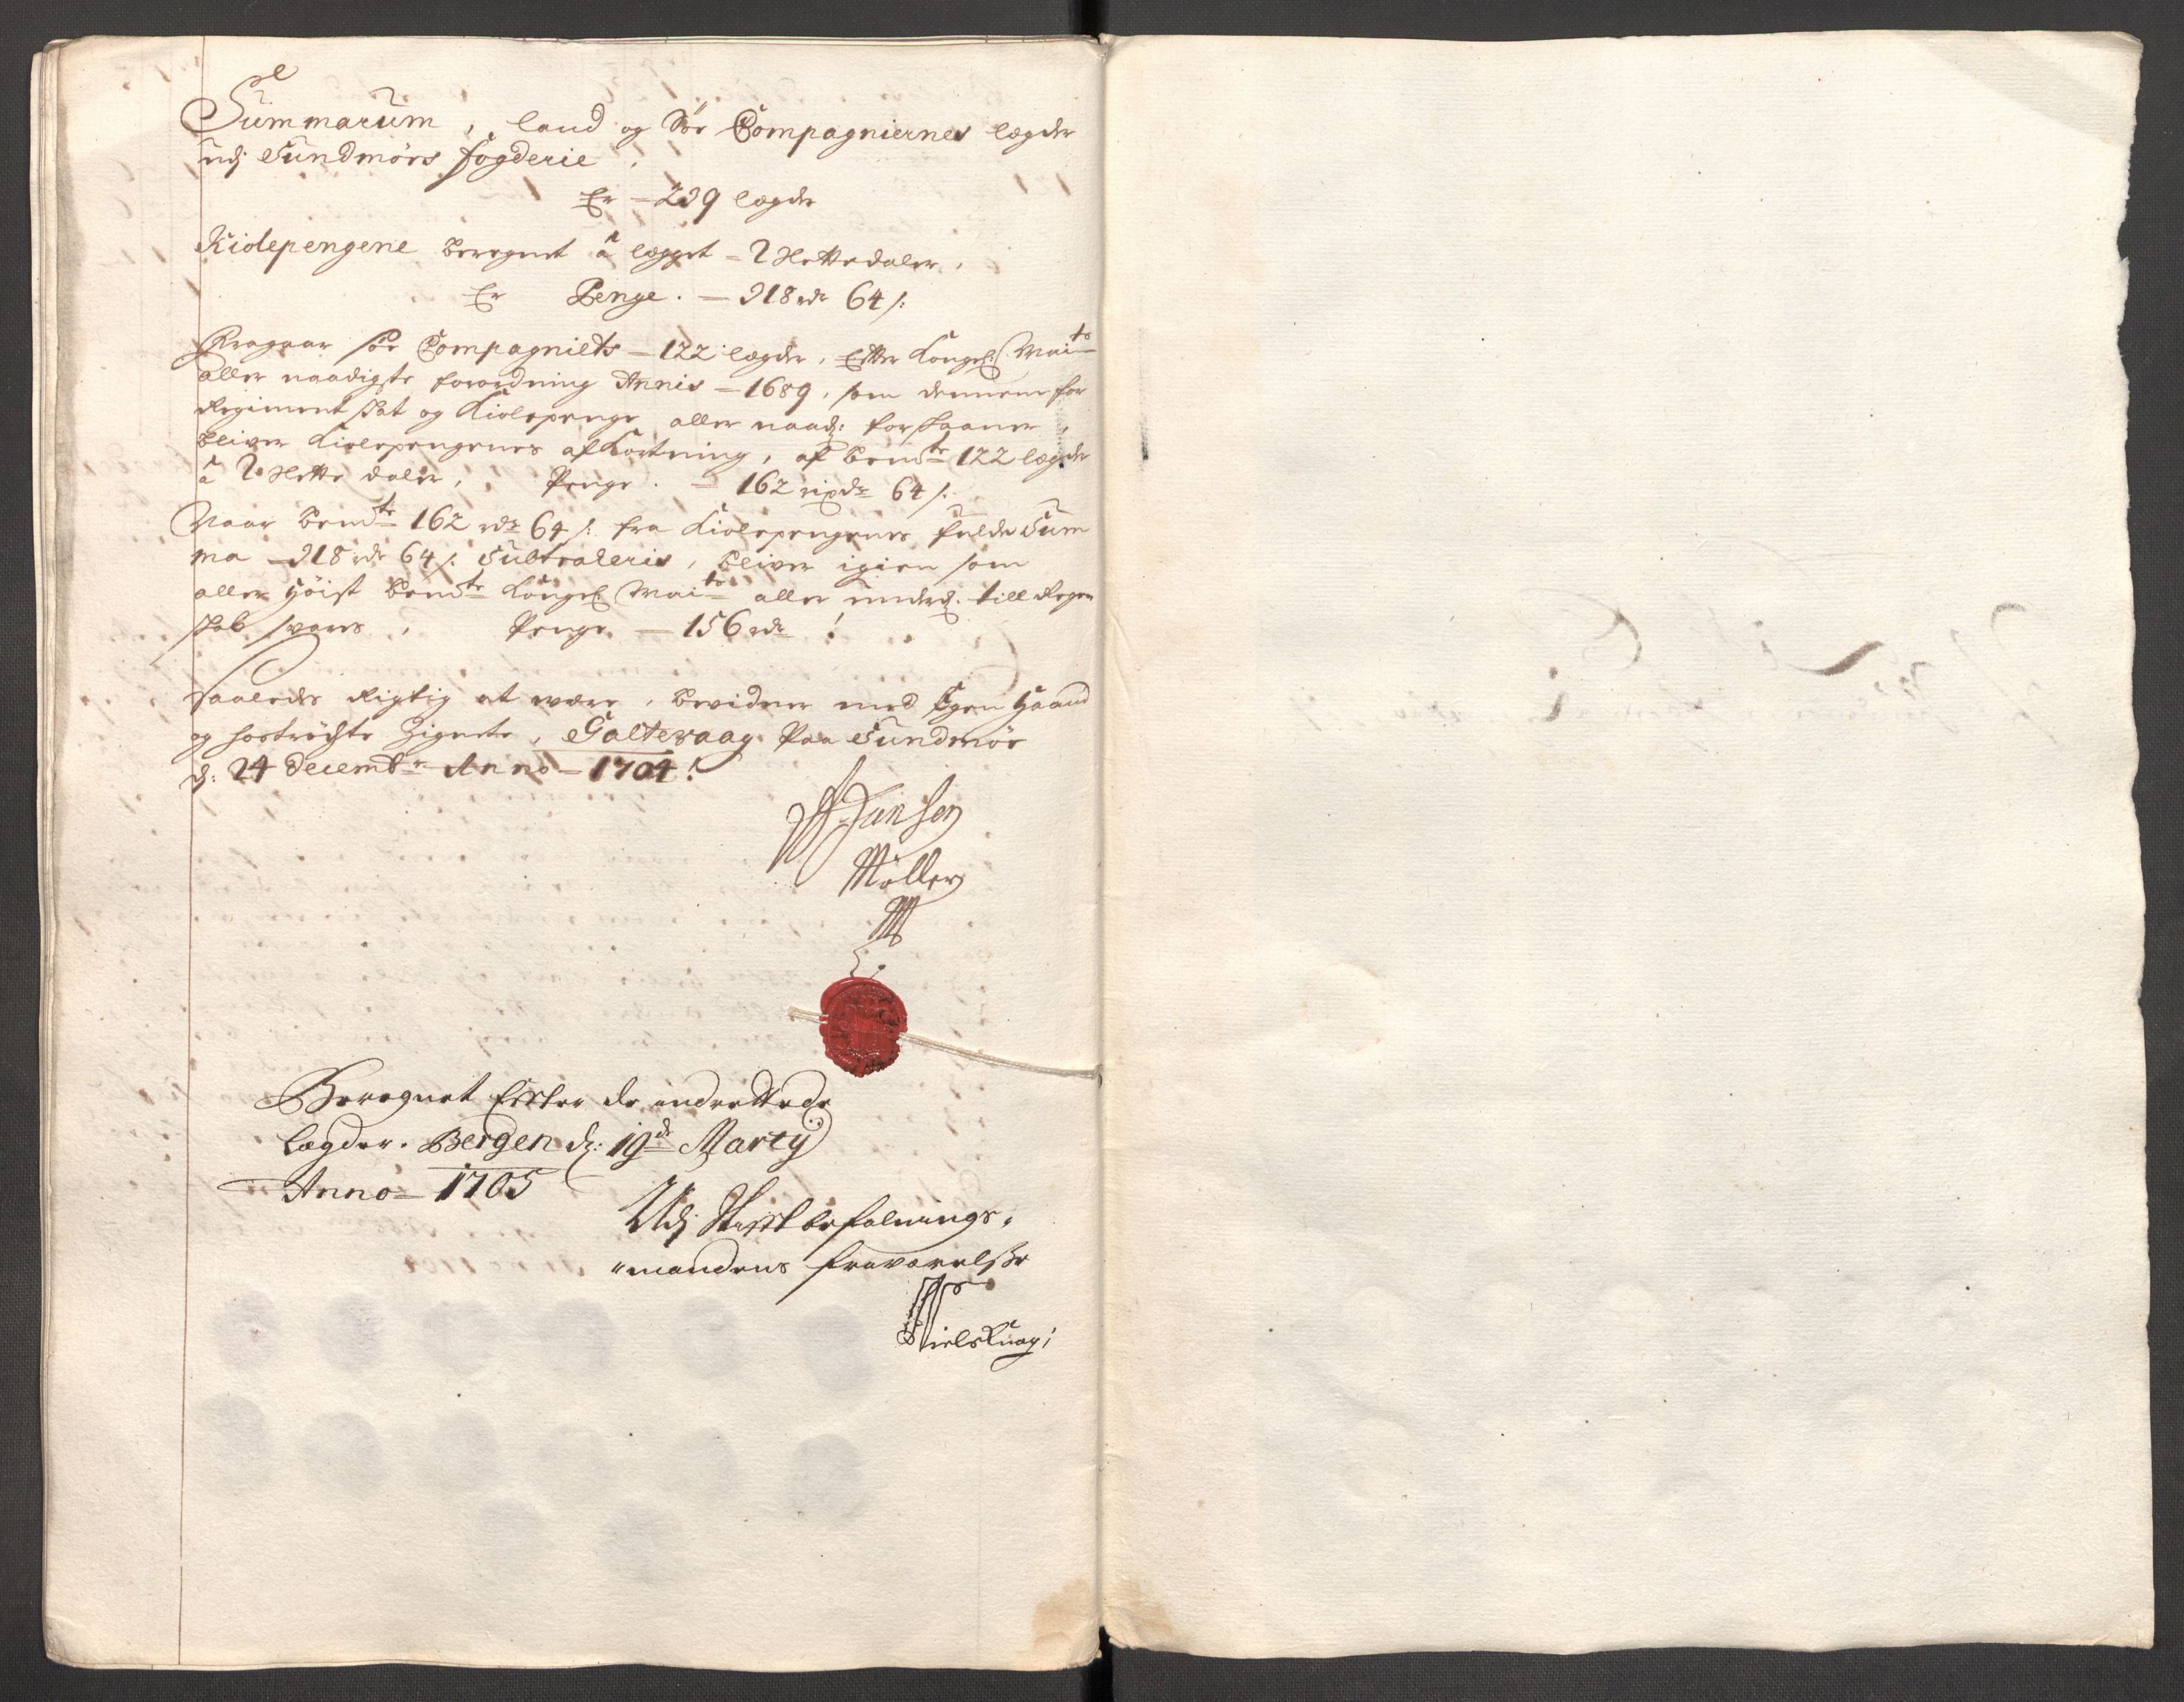 Summarum, land og Søe Compagniernes lægder
udj Sundmørs fogderie,
Er – 239 lægder
Kiolepengene beregnet â lægget – 2 Slettedaler,
Er Penge. – 318 rdr 64 s:
Fragaar søe Compagniets – 122 lægder, Efter Kongel: Maits
aller naadigste forordning Annis – 1689, som dennem for
Regiment skat og Kiolepenge aller naad: forskaaner,
bliver Kiolepengenes afkortning, af bemte 122 lægder
â 2 Slette daler, Penge. – 162 rixdr 64 s:
Naar bemte 162 rdr 64 s: fra Kiolepengenes fulde Sum
ma – 318 rdr 64 s: Subtraheris, bliver igien som
aller Høist bemte Kongel Maits aller underd. till Regen
skab føres, Penge – 156 rdr !
Saaledes Rigtig at være, bevidner med Egen Haand
og hostrøchte Zignete, Galtevaag Paa Sundmør
d: 24 decembr Anno – 1704 !
JJanson
Møller
Beregnet Effter de indrettede
lægder. Bergen d: 19de Martij
Anno – 1705
Udj Stifftbefalnings-
"mandens fraværelsse
NielsKnag;